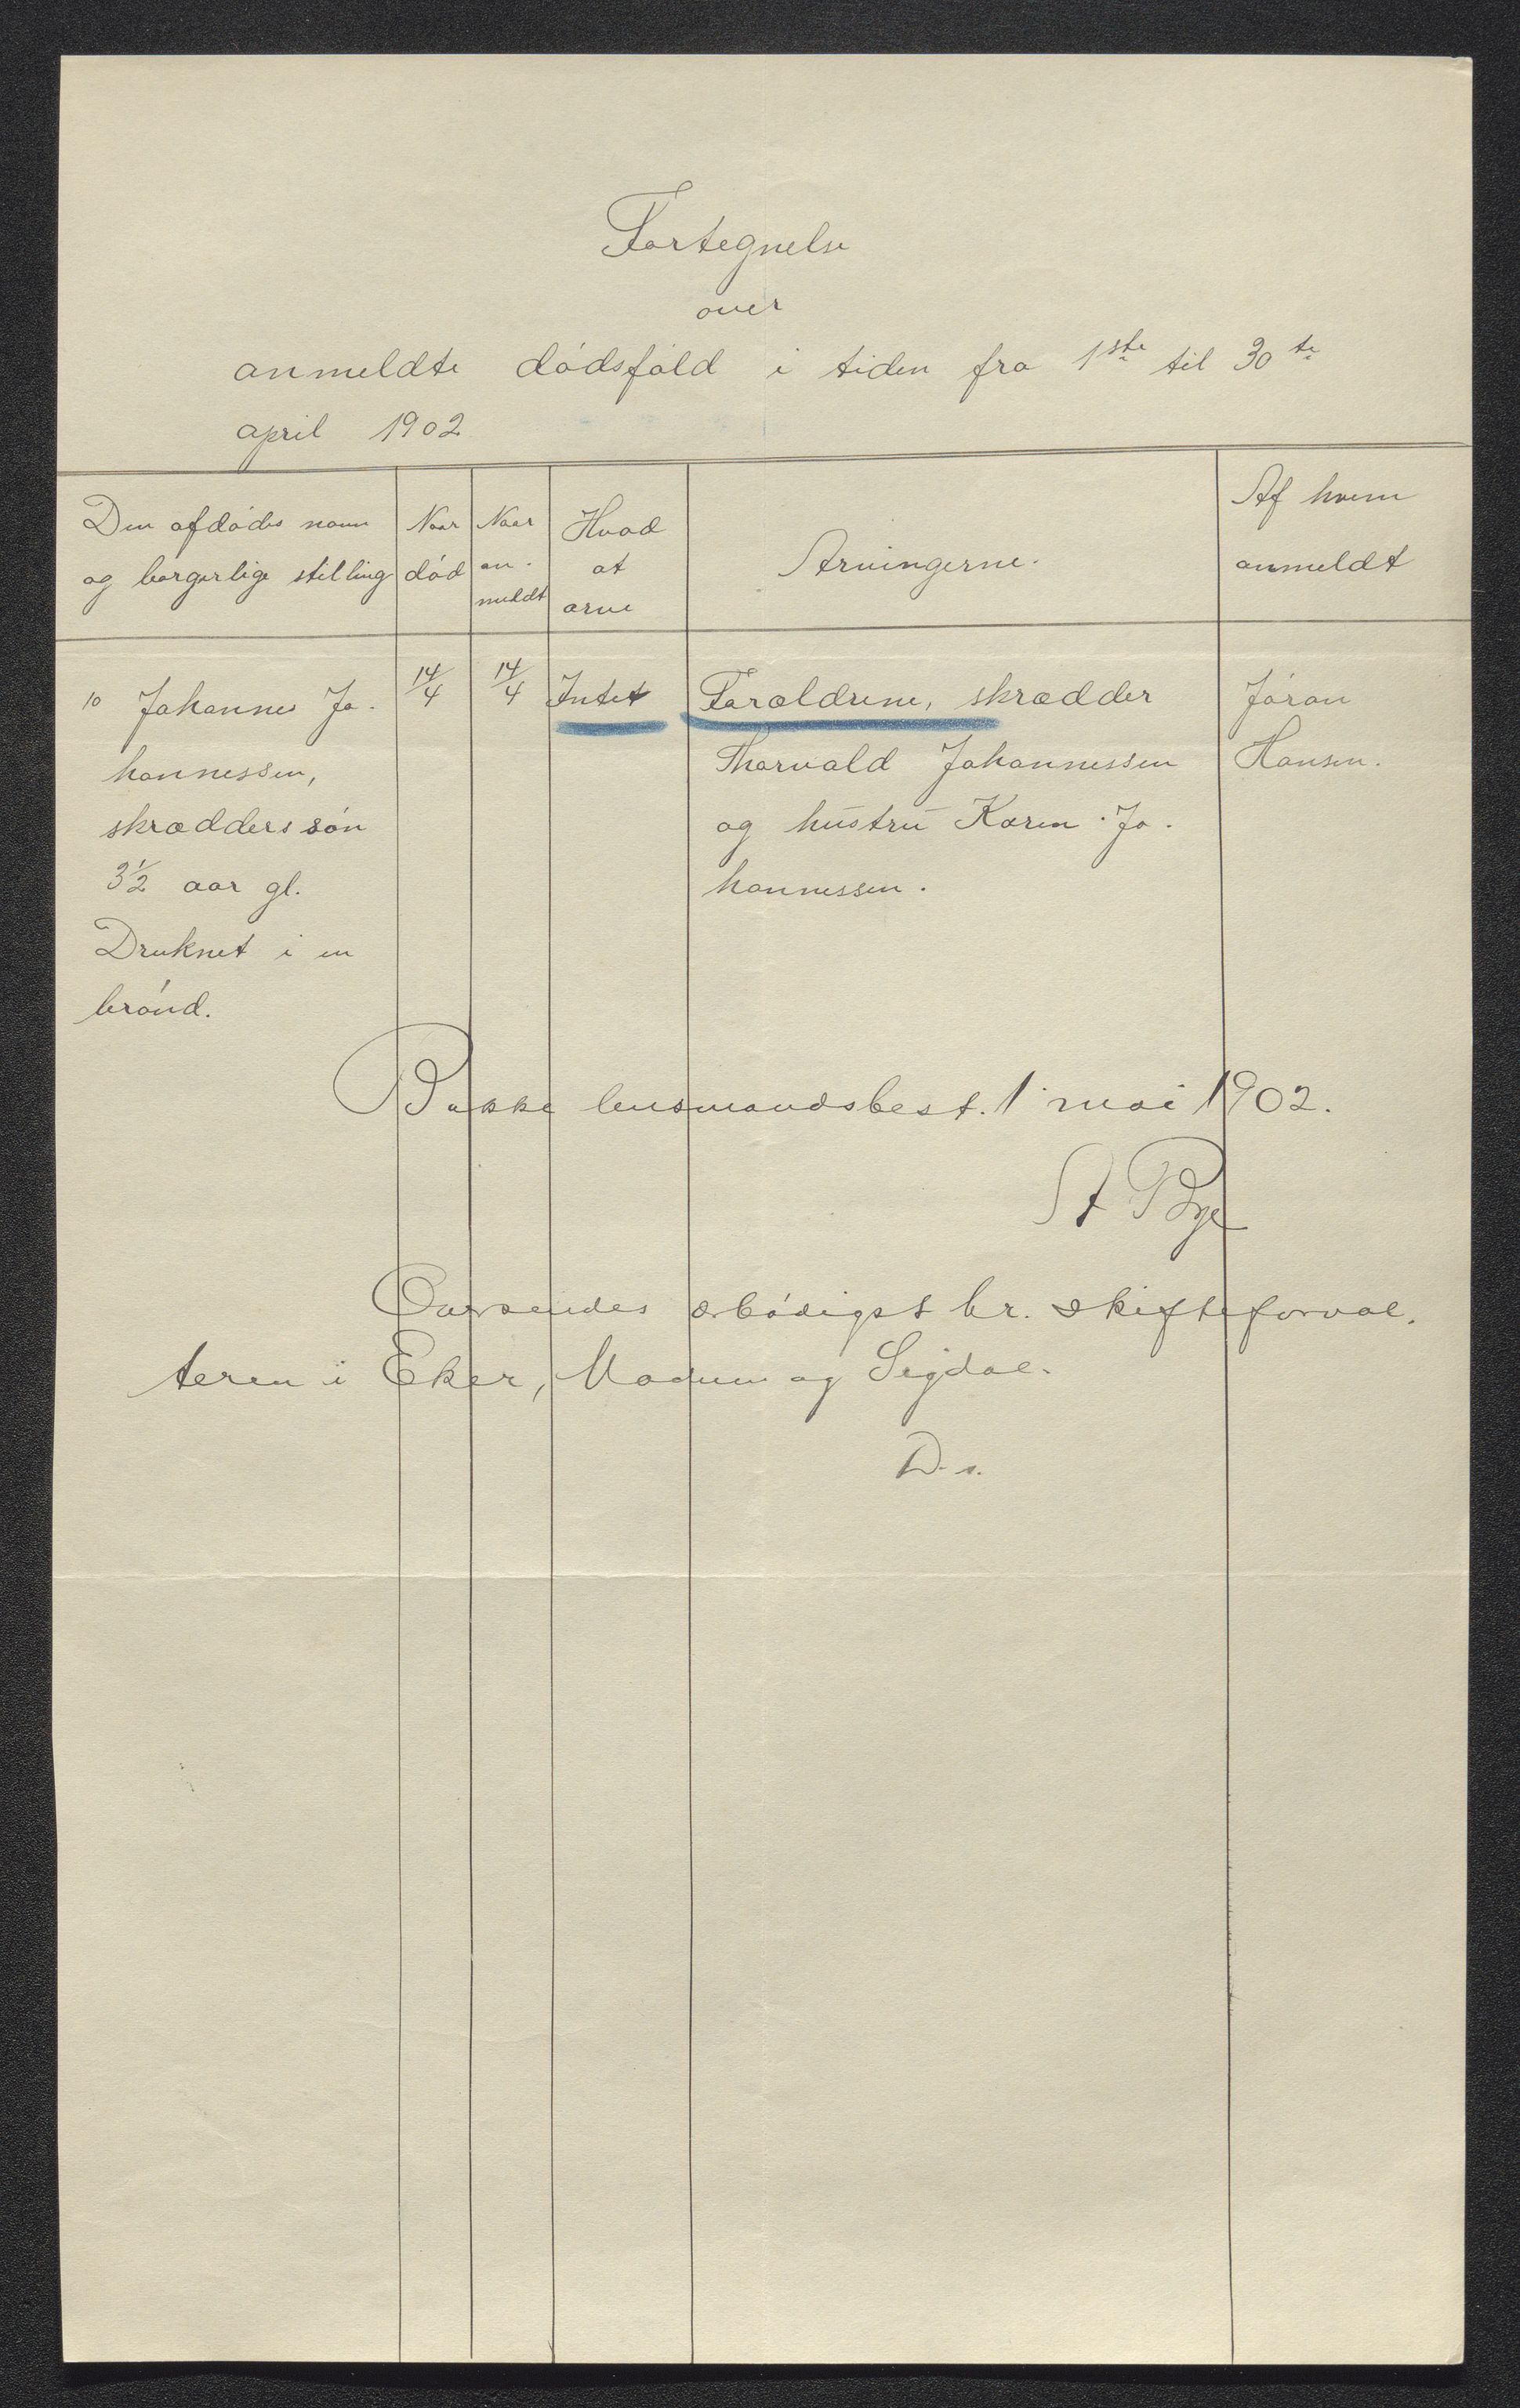 Fortegnelse
over
anmeldte dødsfald i tiden fra 1ste til 30te
april 1902
Den afdødes navn
og borgerlige stilling
Naar
død
Naar
an-
meldt
Hvad
at
arve
Arvingerne.
Af hvem
anmeldt
10 Johannes Jo-
hannessen,
skrædders søn
3 1/2 aar gl.
Druknet i en
brønd.
14/4
14/4
Intet
Forældrene, skrædder
Thorvald Johannessen
og hustru Karen Jo-
hannessen.
Jøran
Hansen.
Bakke lensmandsbest. 1 mai 1902.
A Bye
Oversendes ærbødigst hr. skifteforval-
teren i Eker, Modum og Sigdal.
D. s.